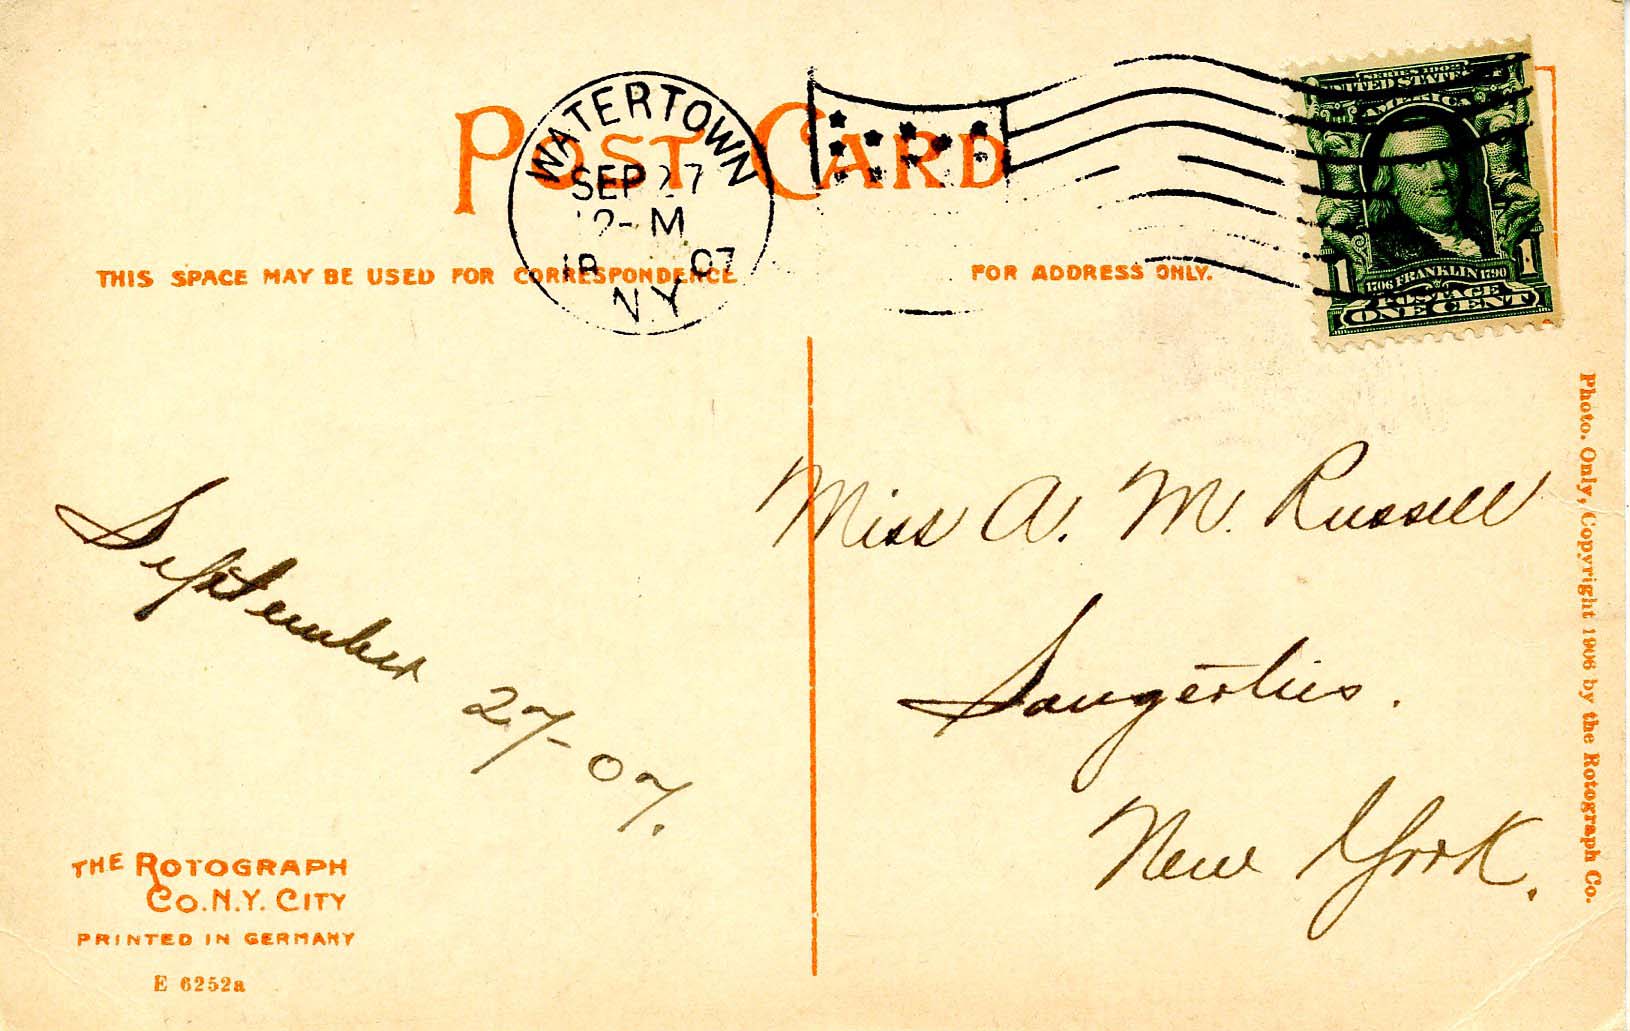 POST CARD
WATERTOWN
SEP 27
M
07
N Y
SERIES 1902
UNITED STATES
AMERICA
1706 FRANKLIN 1790
1 1
POSTAGE
ONE CENT
THIS SPACE MAY BE USED FOR CORRESPONDENCE
FOR ADDRESS ONLY.
September 27-07.
Miss A. M. Russell
Saugerties.
New York.
THE ROTOGRAPH
CO. N.Y. CITY
PRINTED IN GERMANY
E 6252a
Photo. Only, Copyright 1906 by the Rotograph Co.